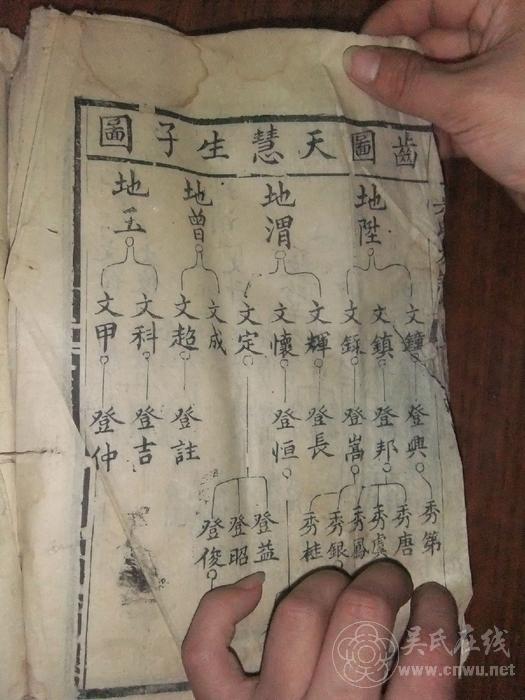 齒圖天慧生子圖
地陞 地渭 地曾 地玉
文鐘 文鎮 文錸 文輝 文懷 文定 文成 文超 文科 文甲
登興 登邦 登嵩 登長 登恒 登註 登吉 登仲
秀第 秀唐 秀虞 秀鳳 秀銀 秀桂 登益 登昭 登俊
吴氏在线
www.cnwu.net